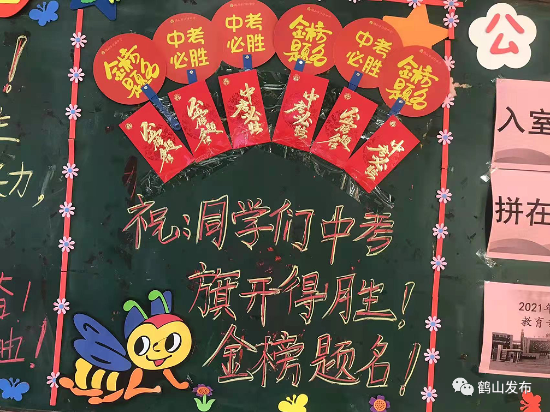 金榜题名
中考必胜
金榜题名
中考必胜
金榜题名
金榜题名
金榜题名
中考必胜
中考必胜
中考必胜
祝:同学们中考
旗开得胜!
金榜题名!
公
入室
拼在
2021年
教育
鹤山发布